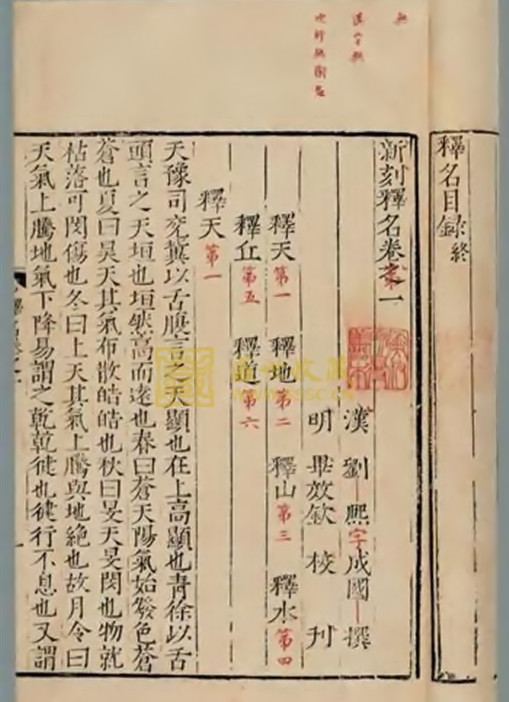 釋名目録終
新刻釋名卷第一
漢 劉熙字成國 撰
明 畢效欽 校 刊
釋天第一 釋地第二 釋山第三 釋水第四
釋丘第五 釋道第六
釋天第一
天豫司兖冀以舌腹言之天顯也在上高顯也青徐以舌
頭言之天垣也垣然高而遠也春曰蒼天陽氣始發色蒼
蒼也夏曰昊天其氣布散皓皓也秋曰旻天旻閔也物就
枯落可閔傷也冬曰上天其氣上騰與地絶也故月令曰
天氣上騰地氣下降易謂之乾乾健也健行不息也又謂